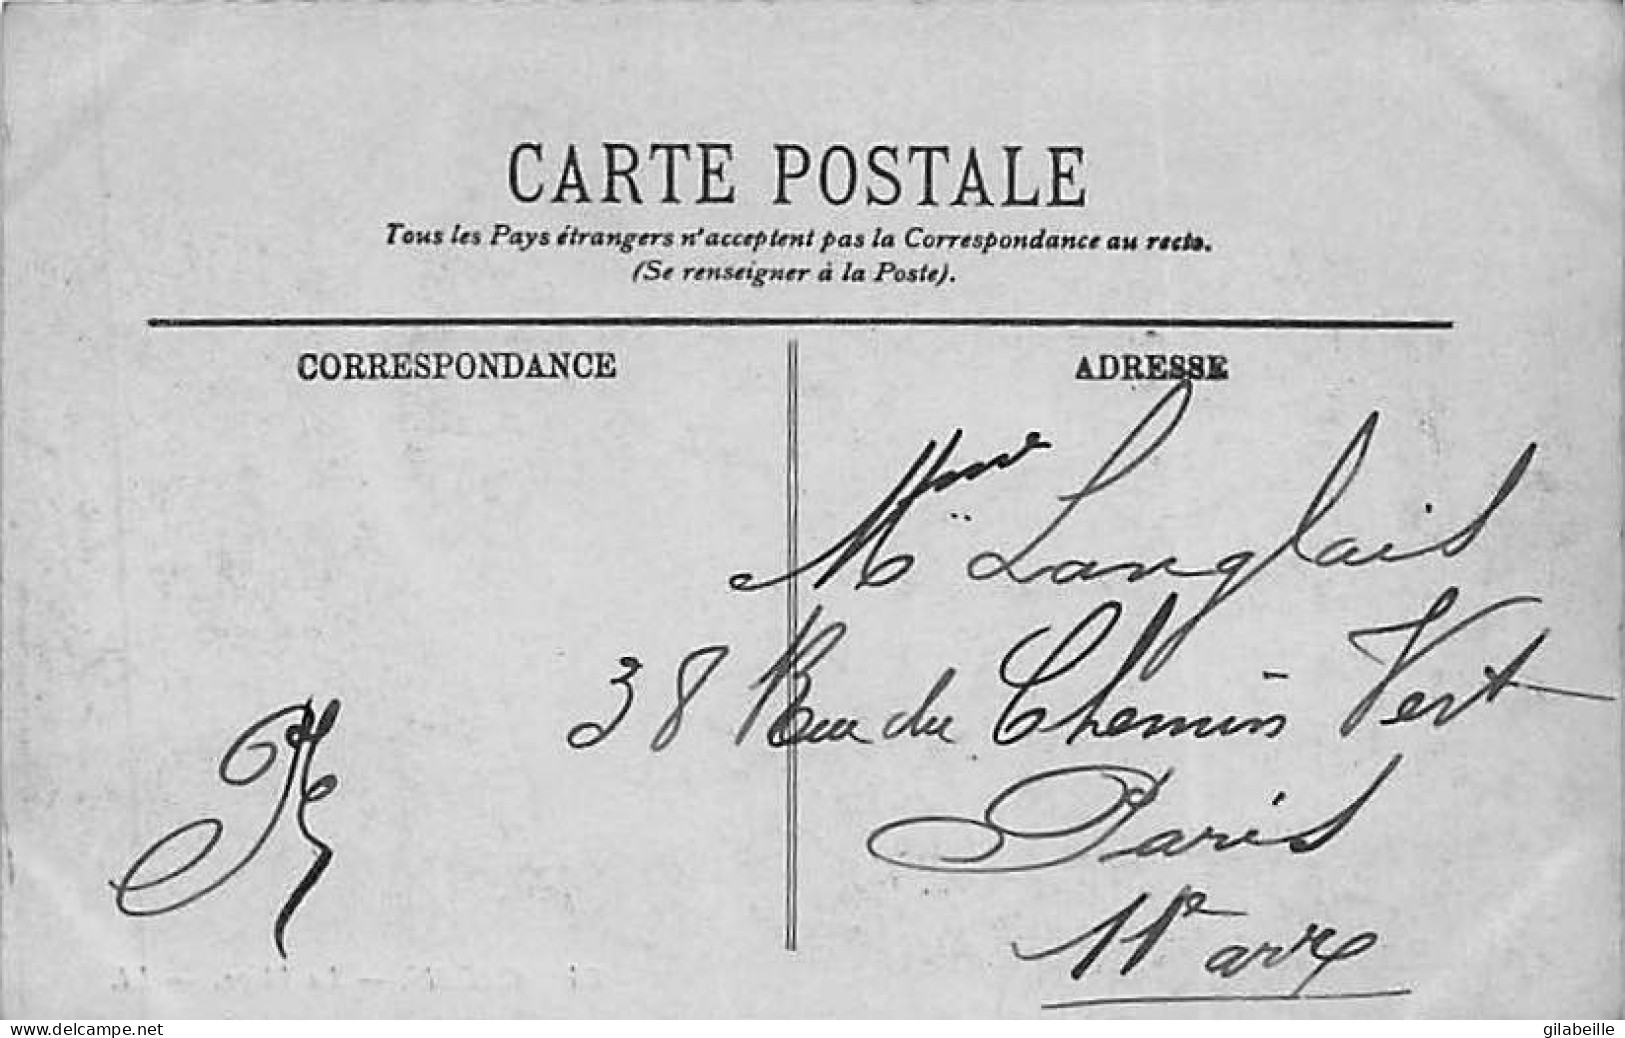 CARTE POSTALE
Tous les Pays étrangers n'acceptent pas la Correspondance au recto.
(Se renseigner à la Poste).
CORRESPONDANCE
ADRESSE
Mme Langlais
38 Rue du Chemin Vert
Paris
11e arr
www.delcampe.net
gilabeille